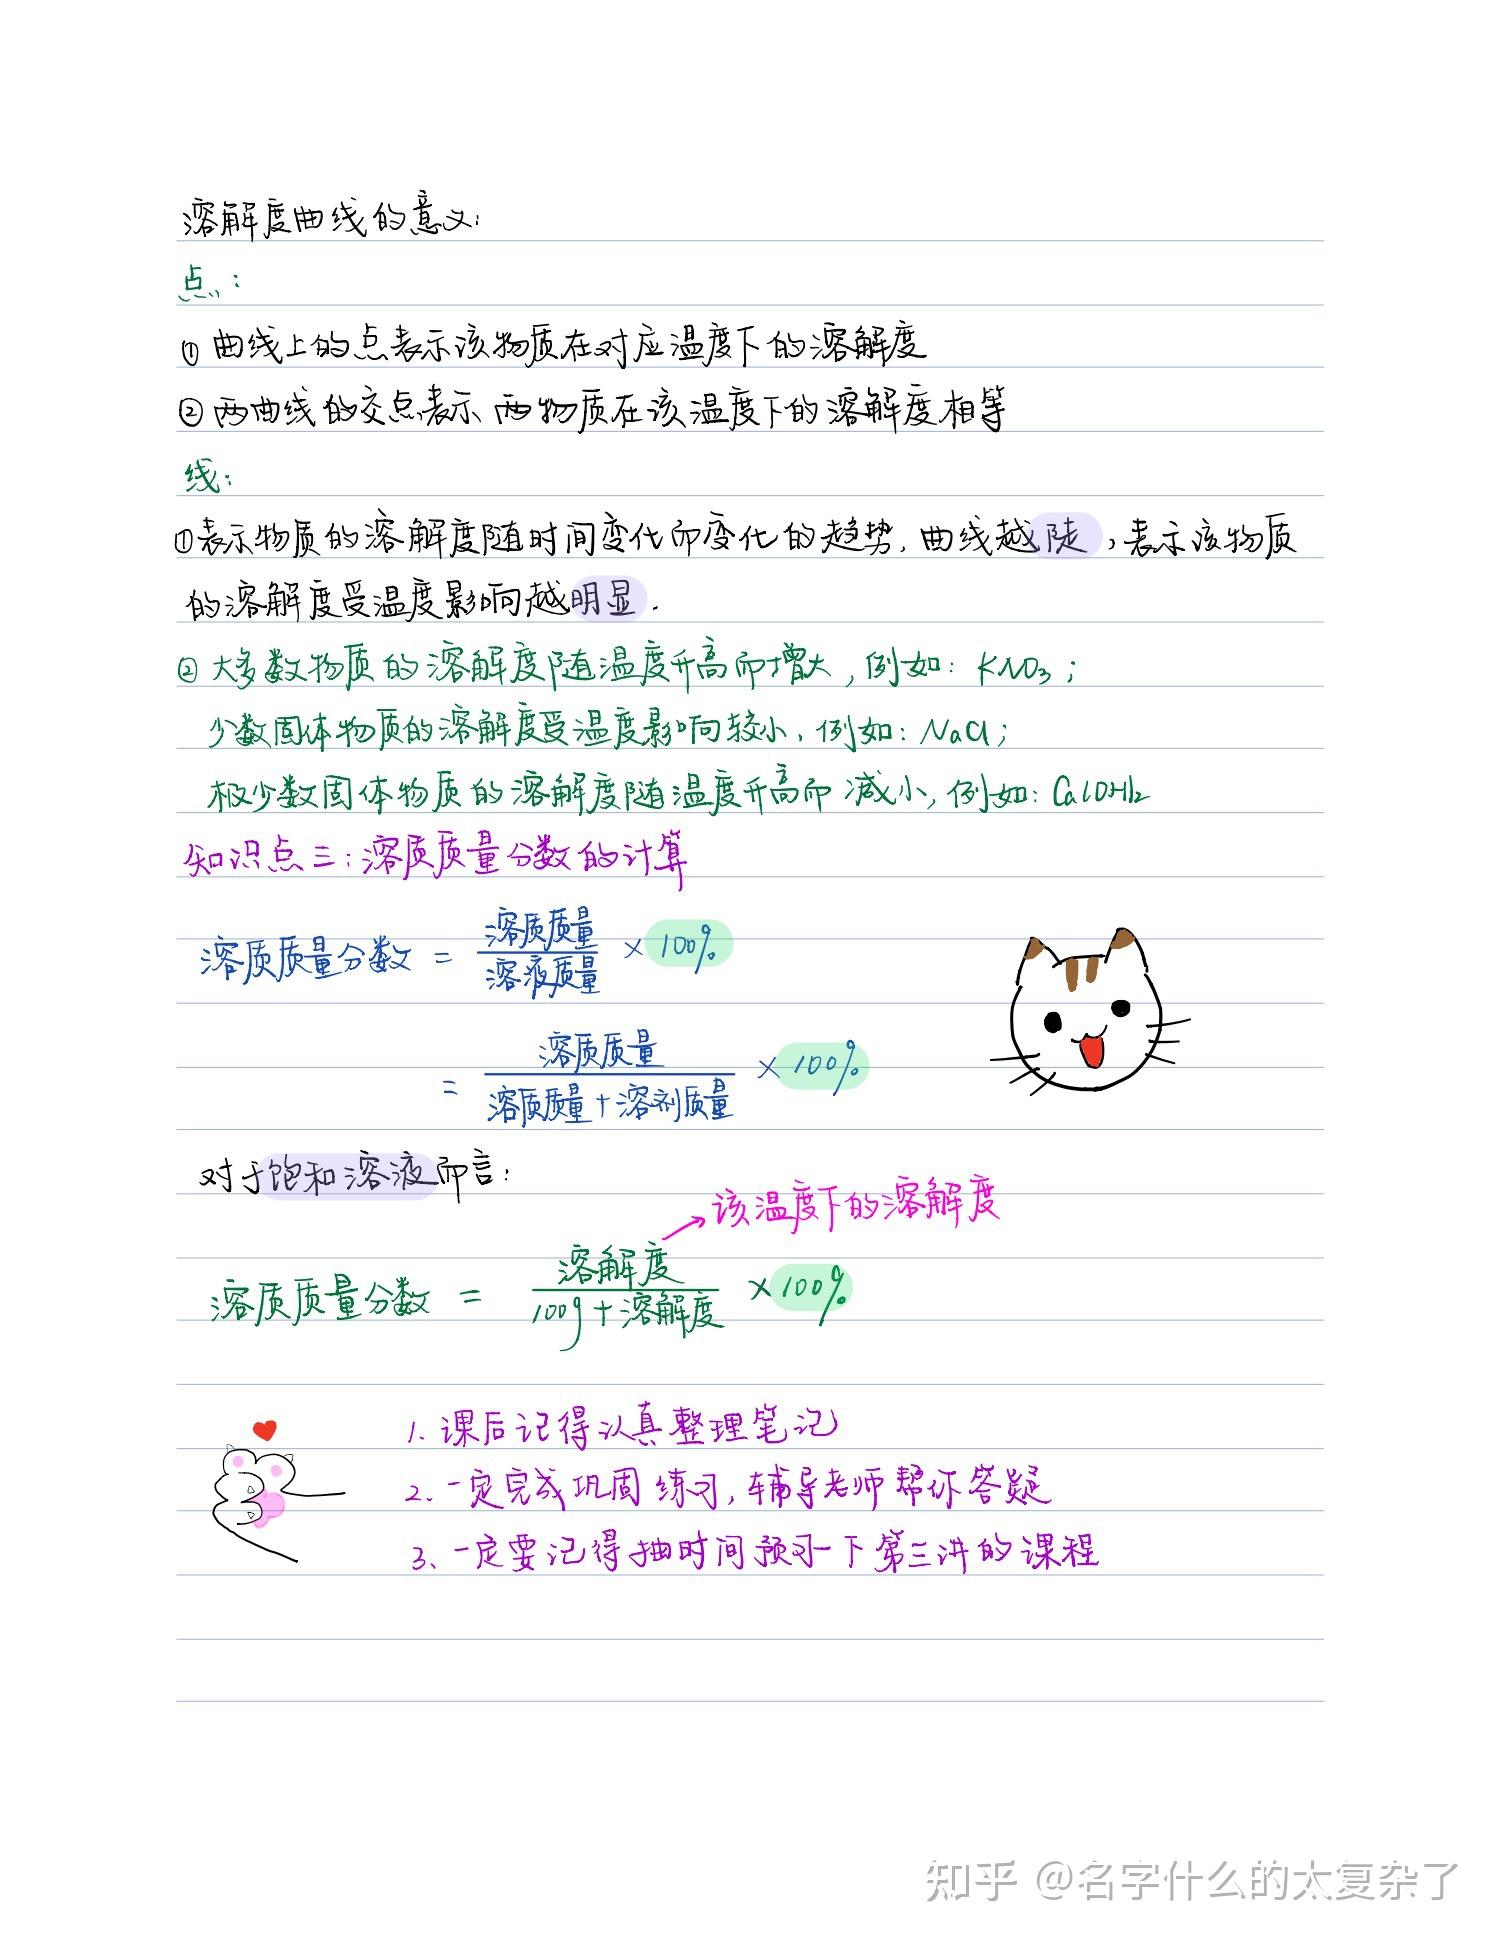 溶解度曲线的意义:
点:
①曲线上的点表示该物质在对应温度下的溶解度
②两曲线的交点表示两物质在该温度下的溶解度相等
线:
①表示物质的溶解度随时间变化而变化的趋势,曲线越陡,表示该物质
的溶解度受温度影响越明显.
②大多数物质的溶解度随温度升高而增大,例如:KNO3;
少数固体物质的溶解度受温度影响较小,例如:NaCl;
极少数固体物质的溶解度随温度升高而减小,例如:Ca(OH)2
知识点三:溶质质量分数的计算
溶质质量分数 = 溶质质量/溶液质量 × 100%
= 溶质质量/溶质质量+溶剂质量 × 100%
对于饱和溶液而言:
该温度下的溶解度
溶质质量分数 = 溶解度/100g+溶解度 × 100%
1.课后记得认真整理笔记
2.一定完成巩固练习,辅导老师帮你答疑
3.一定要记得抽时间预习一下第三讲的课程
知乎 @名字什么的太复杂了